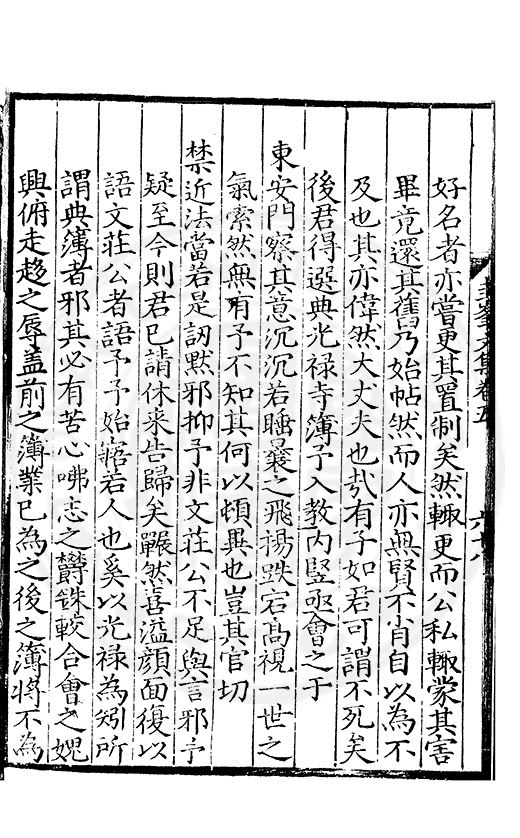 好名者亦嘗更其置制矣然輙更而公私輙蒙其害
畢竟還其舊乃始帖然而人亦無賢不肖自以為不
及也其亦偉然大丈夫也㢤有子如君可謂不死矣
後君得選典光禄寺簿予入教内竪亟會之于
東安門察其意沉沉若睡曩之飛揚跌宕髙視一世之
氣索然無有予不知其何以頓異也豈其官切
禁近法當若是訒黙邪抑予非文莊公不足與言邪予
疑至今則君已請休来告歸矣囅然喜溢顔面復以
語文莊公者語予予始寤若人也奚以光禄為矧所
謂典簿者邪其必有苦心咈志之欝銖較合會之媿
興俯走趍之辱盖前之簿業已為之後之簿將不為
文集卷五
六十八